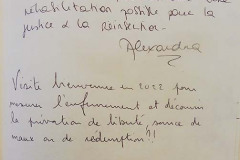 réhabilitation possible pour la
justice à la réinsertion.
Alexandra
Visite bienvenue en 2022 pour
mesurer l'enfermement et découvrir
la privation de liberté, source de
maux ou de rédemption ?!